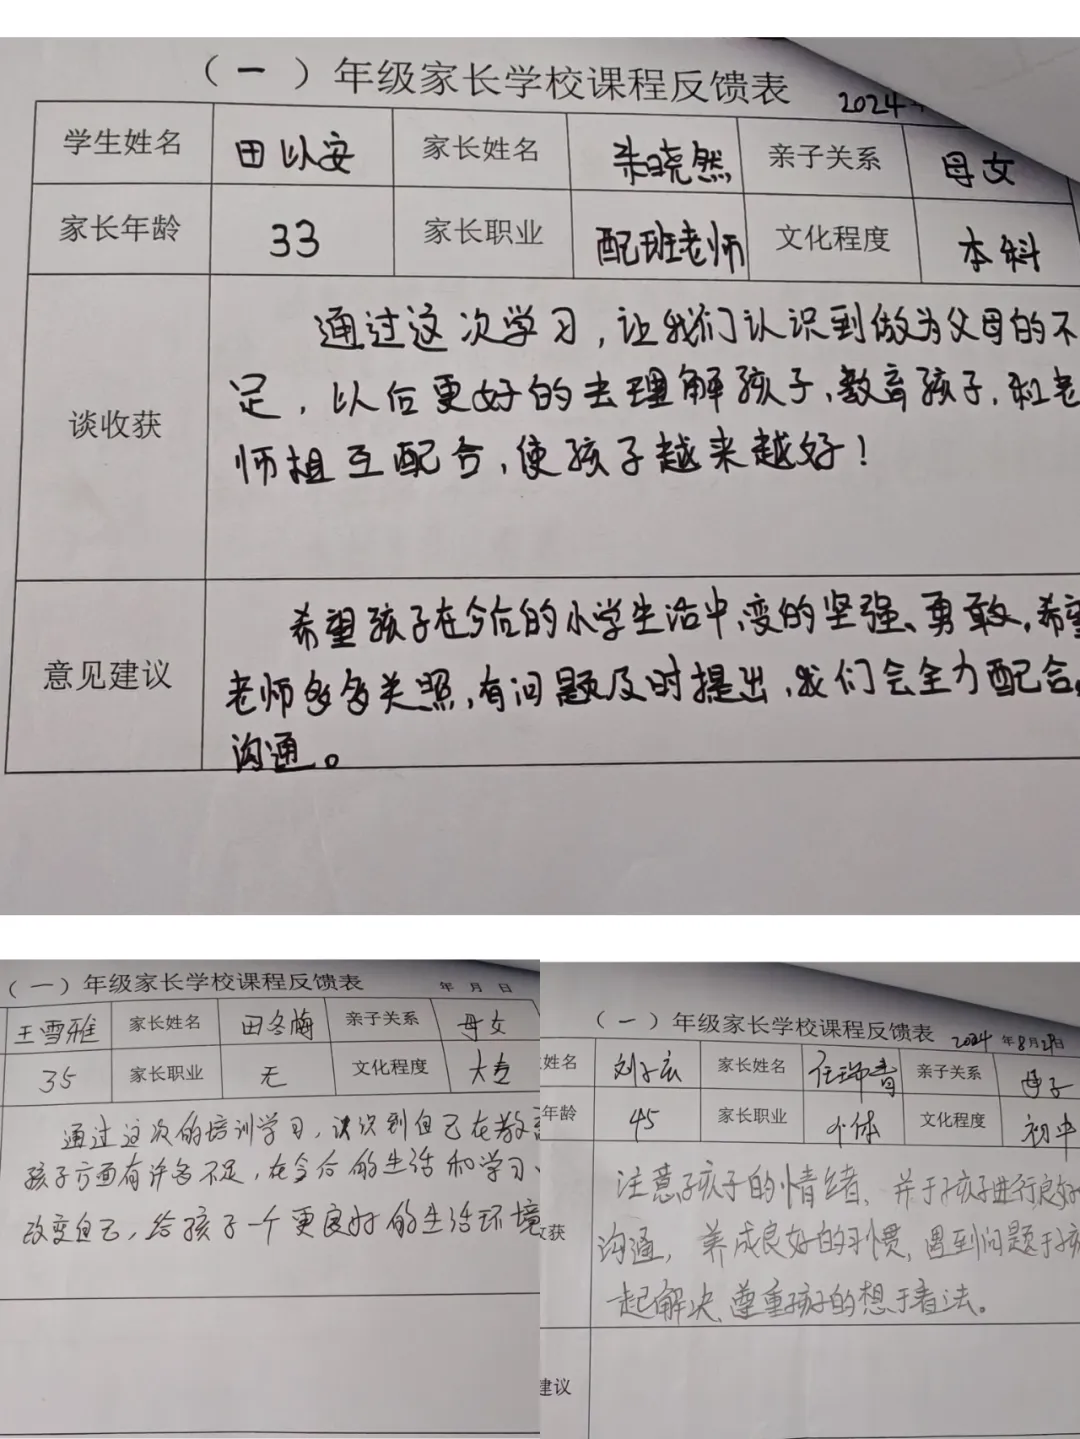 （一）年级家长学校课程反馈表 2024年
学生姓名 田以安 家长姓名 朱晓然 亲子关系 母女
家长年龄 33 家长职业 配班老师 文化程度 本科
通过这次学习，让我们认识到做为父母的不
足，以后更好的去理解孩子、教育孩子，和老
谈收获
师相互配合，使孩子越来越好！
希望孩子在今后的小学生活中，变的坚强、勇敢，希望
意见建议
老师多多关照，有问题及时提出，我们会全力配合，
沟通。
（一）年级家长学校课程反馈表 年 月 日
王雪雅 家长姓名 田冬梅 亲子关系 母女
35 家长职业 无 文化程度 大专
通过这次的培训学习，认识到自己在教育
孩子方面有许多不足，在今后的生活和学习
改变自己，给孩子一个更良好的生活环境
（一）年级家长学校课程反馈表 2024年8月29日
姓名 刘子宏 家长姓名 任瑞青 亲子关系 母子
年龄 45 家长职业 个体 文化程度 初中
注意孩子的情绪、并于孩子进行良好
收获
沟通，养成良好的习惯，遇到问题于孩
起解决、尊重孩子的想于看法。
建议